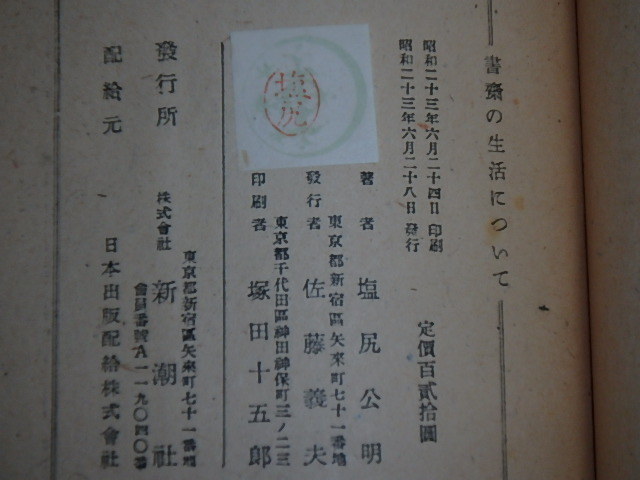 書齋の生活について
昭和二十三年六月二十四日 印刷
昭和二十三年六月二十八日 發行
定價百貳拾圓
著者 塩尻公明
東京都新宿區矢來町七十一番地
發行者 佐藤義夫
東京都千代田區神田神保町三ノ二三
印刷者 塚田十五郎
塩尻
東京都新宿區矢來町七十一番地
發行所 株式會社 新潮社
會員番號A一一九〇四〇番
配給元 日本出版配給株式會社